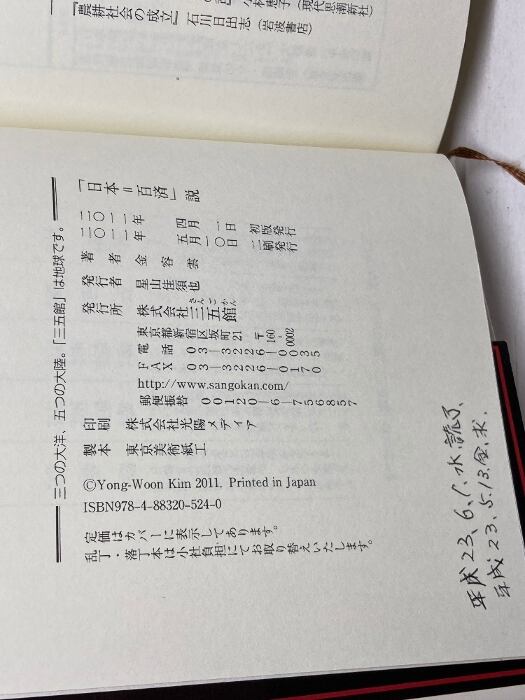 『農耕社会の成立』石川日出志（岩波書店）
三つの大洋、五つの大陸。「三五館」は地球です。
「日本＝百済」説
二〇一一年 四月 一日 初版発行
二〇一一年 五月一〇日 二刷発行
著者 金容雲
発行者 星山佳須也
発行所 株式会社三五館
さんごかん
東京都新宿区坂町21 〒160-0002
電話 03―3226―0035
FAX 03―3226―0170
http://www.sangokan.com/
郵便振替 00120―6―756857
印刷 株式会社光陽メディア
製本 東京美術紙工
©Yong-Woon Kim 2011, Printed in Japan
ISBN978-4-88320-524-0
定価はカバーに表示してあります。
乱丁・落丁本は小社負担にてお取り替えいたします。
平成23、6、1、水、読了、
平成23、5、13、金、求、